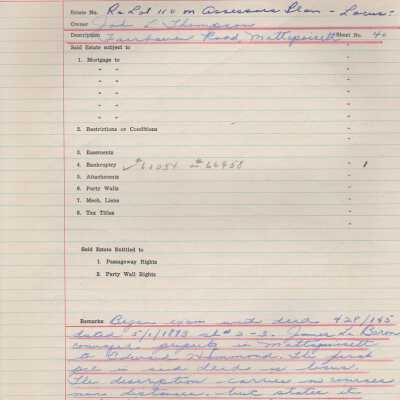 Estate No. Re Lot 110 on Assessors Plan - Locus:
Owner John L. Thompson
Description Fairhaven Road, Mattapoisett Sheet No. 40
Said Estate subject to
1. Mortgage to "
" " "
" " "
" " "
" " "
" " "
2. Restrictions or Conditions "
"
3. Easements "
4. Bankruptcy ✓ #61054 #66958 " 1
5. Attachments "
6. Party Walls "
7. Mech. Liens "
8. Tax Titles "
"
Said Estate Entitled to
1. Passageway Rights
2. Party Wall Rights
Remarks Began exam with deed 428/145
dated 5/1/1893 sht 2-3. James Le Baron
conveyed property in Mattapoisett
to Edward Hammond. The first
pcl in said deed is locus.
The description carries no courses
nor distances, but states it